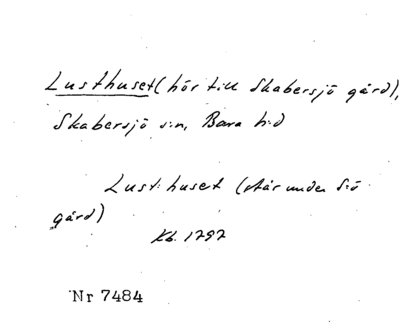 Lusthuset (hör till Skabersjö gård),
Skabersjö s:n, Bara h:d
Lust:huset (står under S:ö
gård)
Kb. 1797
Nr 7484